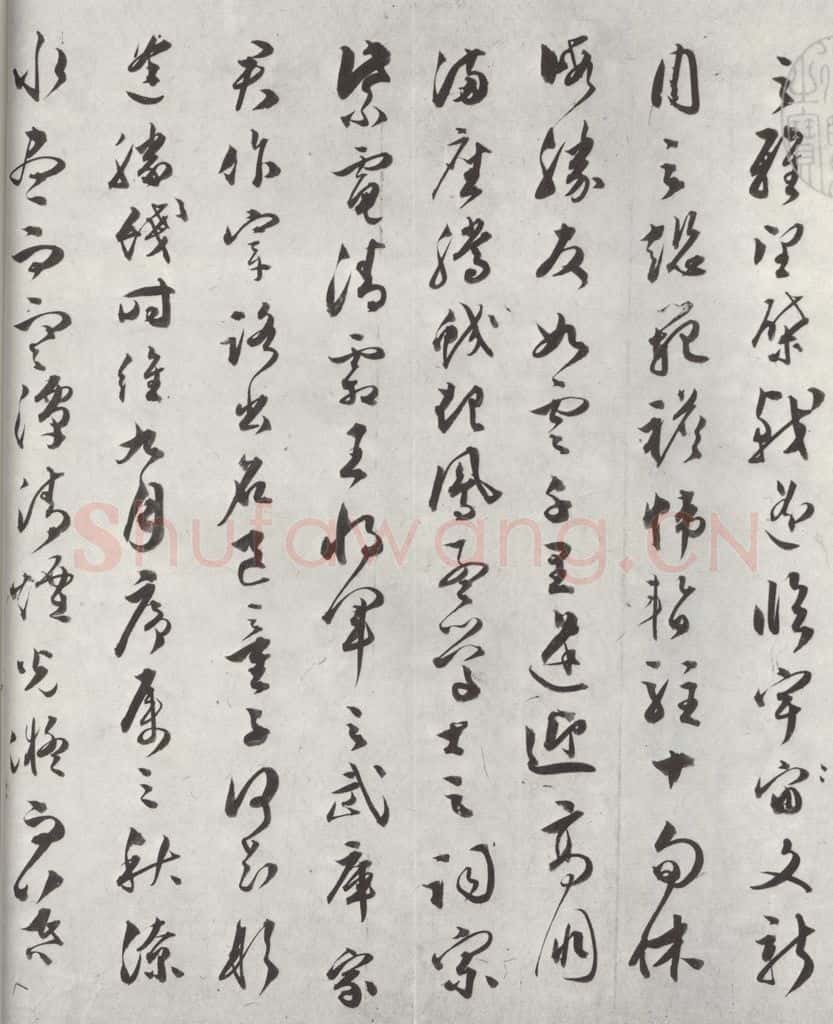 之雅望棨戟遥臨宇宙文新
州之懿範襜帷暫駐十旬休
暇勝友如雲千里逢迎高朋
滿座騰蛟起鳳孟學士之詞宗
紫電清霜王將軍之武庫家
君作宰路出名區童子何知躬
逢勝餞時維九月序屬三秋潦
水盡而寒潭清煙光凝而暮
shufawang.CN